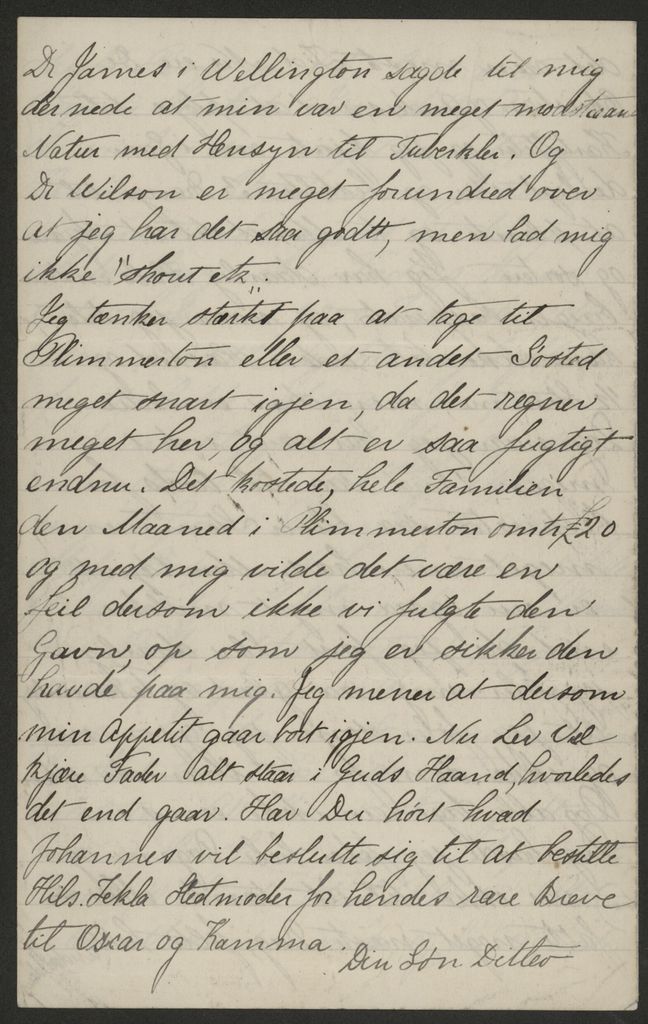 Dr James i Wellington sagde til mig
dernede at min var en meget modstaaan
Natur med Hensyn til Tuberkler. Og
Dr Wilson er meget forundred over
at jeg har det saa godt, men lad mig
ikke "shout etc".
Jeg tænker stærkt paa at tage til
Plimmerton eller et andet Sosted
meget snart igjen, da det regner
meget her, og alt er saa fugtigt
endnu. Det kostede, hele Familien
den Maaned i Plimmerton omtr £20
og med mig vilde det være en
feil dersom ikke vi fulgte den
Gavn, op som jeg er sikker den
havde paa mig. Jeg mener at dersom
min Appetit gaar bort igjen. Nu Lev Vel
kjære Fader alt staar i Guds Haand, hvorledes
det end gaar. Har Du hört hvad
Johannes vil beslutte sig til at bestille
Hils. Tekla Stedmoder for hendes rare Breve
til Oscar og Kamma.
Din Søn Ditlev